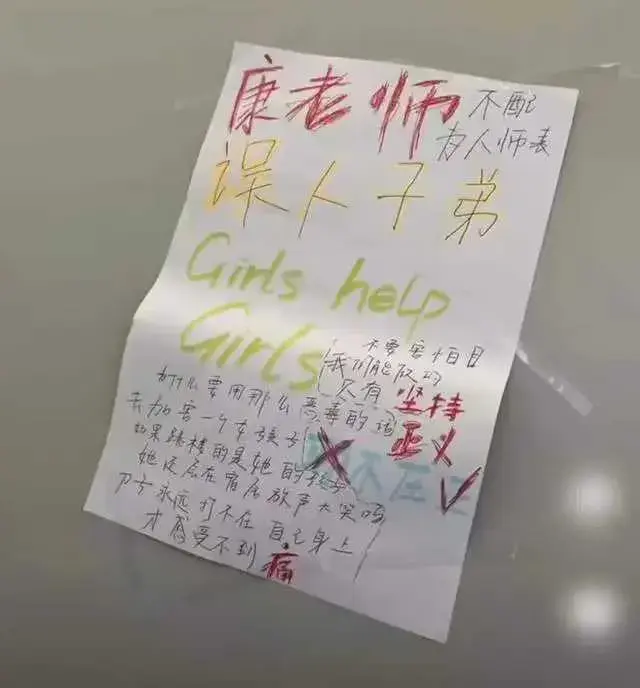 康老师 不配
为人师表
误人子弟
Girls help
Girls
不要害怕
我们能做的
只有 坚持
正义
为什么要用那么恶毒的话
去加害一个女孩子
如果跳楼的是她的孩子
她还会在宿舍放声大笑吗
刀子永远打不在自己身上
才感受不到痛